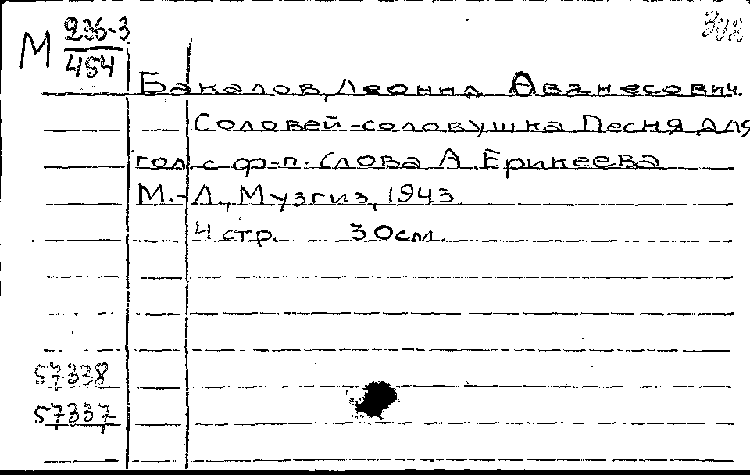 М 236-3
454
Бакалов, Леонид Аванесович.
Соловей-соловушка Песня для
гол с ф-п. Слова А Ерикеева
М.-Л., Музгиз, 1943
4 стр. 30см.
57338
57337